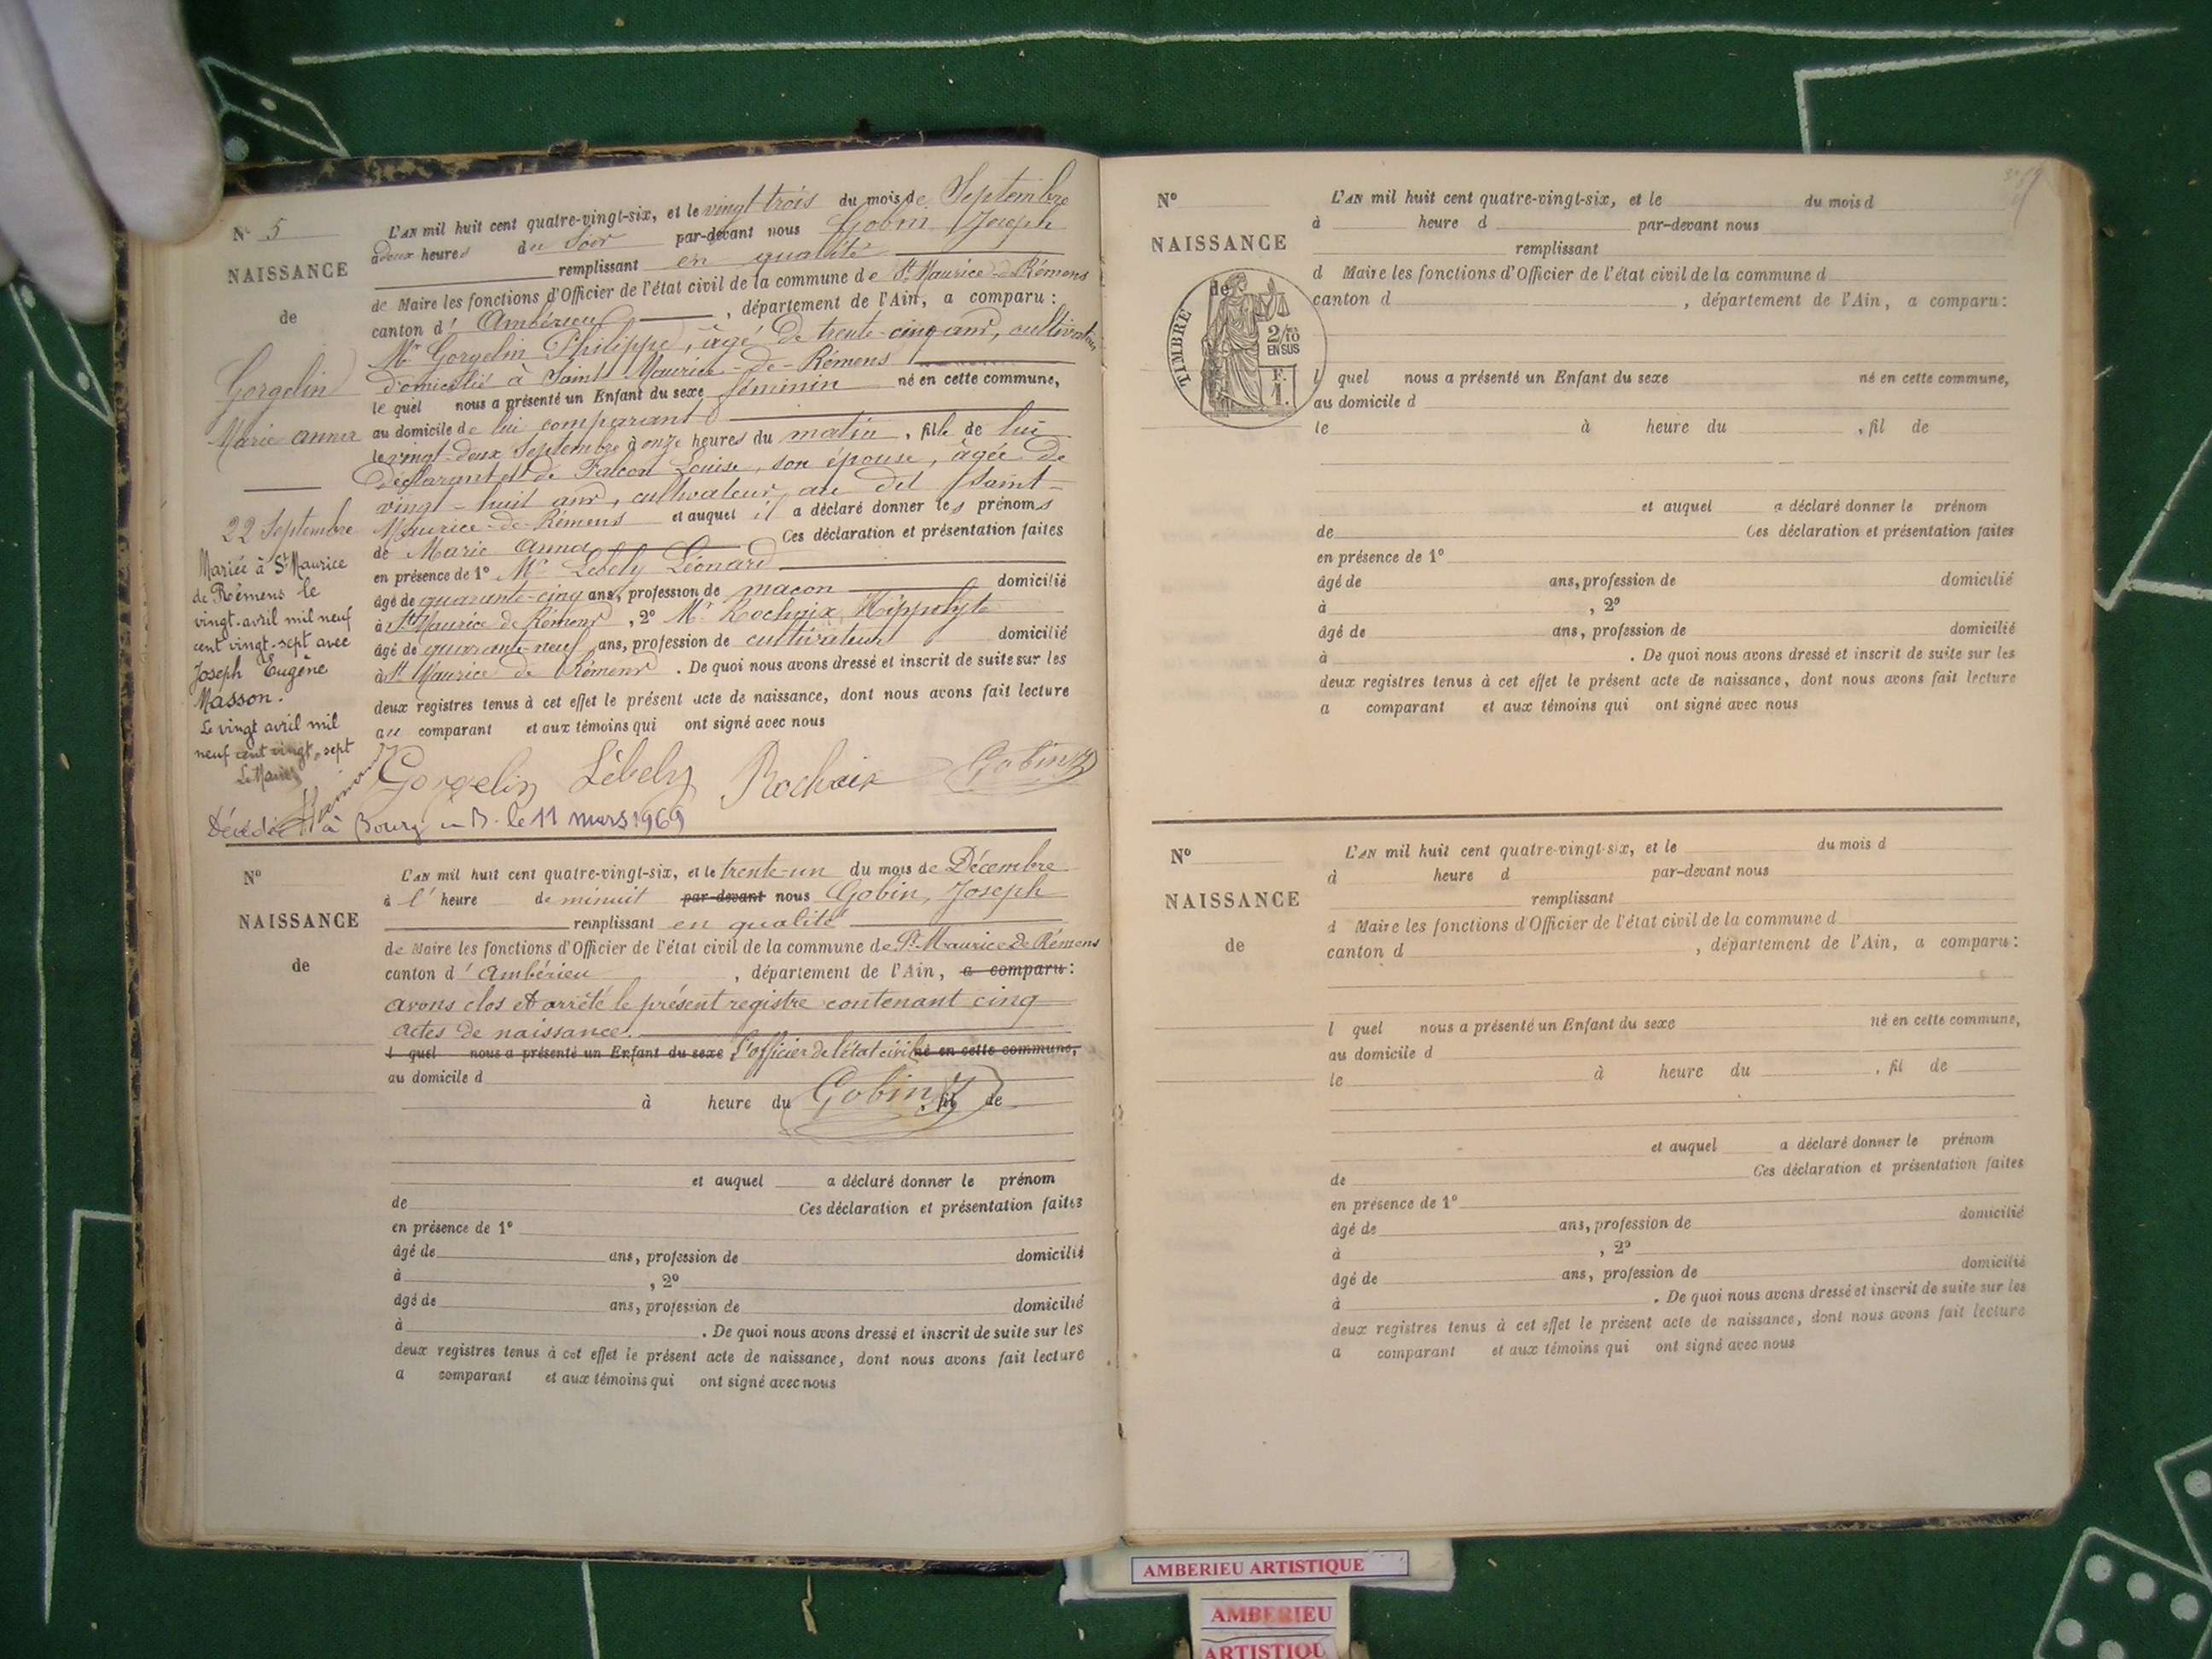 N° 5
NAISSANCE
de
Gorgelin
Marie anna
22 Septembre
Mariée à St Maurice
de Rémens le
vingt-avril mil neuf
cent vingt-sept avec
Joseph Eugène
Masson.
Le vingt avril mil
neuf cent vingt-sept
Le Maire
L'AN mil huit cent quatre-vingt-six, et le vingt-trois du mois de Septembre
à deux heures du soir par-devant nous Gobin Joseph
remplissant en qualité
de Maire les fonctions d'Officier de l'état civil de la commune de St Maurice-de-Rémens
canton d' Ambérieu, département de l'Ain, a comparu :
Mr Gorgelin Philippe, âgé de trente-cinq ans, cultivateur
domicilié à Saint Maurice-de-Rémens
le quel nous a présenté un Enfant du sexe féminin né en cette commune,
au domicile de lui comparant
le vingt-deux Septembre à onze heures du matin, fille de lui
déclarant et de Falcon Louise, son épouse, âgée de
vingt-huit ans, cultivateur au dit Saint-
Maurice-de-Rémens et auquel il a déclaré donner les prénoms
de Marie Anna Ces déclaration et présentation faites
en présence de 1° Mr Lébely Léonard
âgé de quarante-cinq ans, profession de maçon domicilié
à St Maurice de Rémens, 2° Mr Rochaix Hippolyte
âgé de quarante-neuf ans, profession de cultivateur domicilié
à St Maurice de Rémens. De quoi nous avons dressé et inscrit de suite sur les
deux registres tenus à cet effet le présent acte de naissance, dont nous avons fait lecture
au comparant et aux témoins qui ont signé avec nous
Gorgelin Lébely Rochaix Gobin J
Décédée à Bourg en B. le 11 mars 1969
N°
NAISSANCE
de
L'AN mil huit cent quatre-vingt-six, et le trente-un du mois de Décembre
à l' heure de minuit par-devant nous Gobin, Joseph
remplissant en qualité
de Maire les fonctions d'Officier de l'état civil de la commune de St Maurice de Rémens
canton d' Ambérieu, département de l'Ain, a comparu :
avons clos et arrêté le présent registre contenant cinq
actes de naissance.
l quel nous a présenté un Enfant du sexe L'officier de l'état civil né en cette commune,
au domicile d
à heure du Gobin J , fil de
et auquel a déclaré donner le prénom
de Ces déclaration et présentation faites
en présence de 1°
âgé de ans, profession de domicilié
à , 2°
âgé de ans, profession de domicilié
à . De quoi nous avons dressé et inscrit de suite sur les
deux registres tenus à cet effet le présent acte de naissance, dont nous avons fait lecture
a comparant et aux témoins qui ont signé avec nous
N°
NAISSANCE
de
TIMBRE
2/10
EN SUS
F.
1.
L'AN mil huit cent quatre-vingt-six, et le du mois d
à heure d par-devant nous
remplissant
d Maire les fonctions d'Officier de l'état civil de la commune d
canton d , département de l'Ain, a comparu :
l quel nous a présenté un Enfant du sexe né en cette commune,
au domicile d
le à heure du , fil de
et auquel a déclaré donner le prénom
de Ces déclaration et présentation faites
en présence de 1°
âgé de ans, profession de domicilié
à , 2°
âgé de ans, profession de domicilié
à . De quoi nous avons dressé et inscrit de suite sur les
deux registres tenus à cet effet le présent acte de naissance, dont nous avons fait lecture
a comparant et aux témoins qui ont signé avec nous
N°
NAISSANCE
de
L'AN mil huit cent quatre-vingt-six, et le du mois d
à heure d par-devant nous
remplissant
d Maire les fonctions d'Officier de l'état civil de la commune d
canton d , département de l'Ain, a comparu :
l quel nous a présenté un Enfant du sexe né en cette commune,
au domicile d
le à heure du , fil de
et auquel a déclaré donner le prénom
de Ces déclaration et présentation faites
en présence de 1°
âgé de ans, profession de domicilié
à , 2°
âgé de ans, profession de domicilié
à . De quoi nous avons dressé et inscrit de suite sur les
deux registres tenus à cet effet le présent acte de naissance, dont nous avons fait lecture
a comparant et aux témoins qui ont signé avec nous
AMBERIEU ARTISTIQUE
AMBERIEU
ARTISTIQU